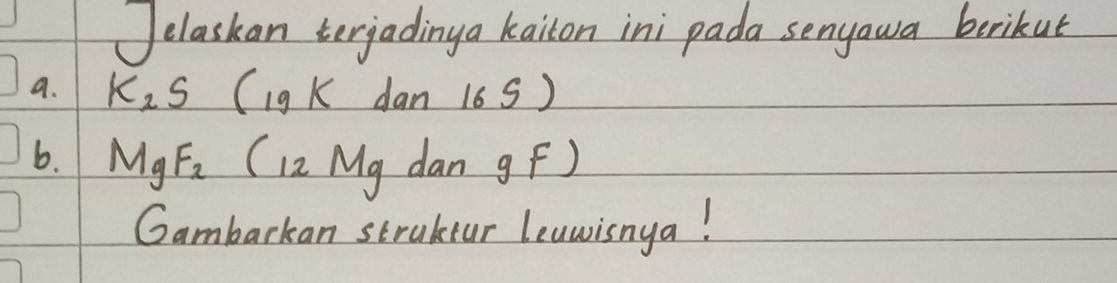 Jelaskan terjadinya kaiton ini pada senyawa berikut
a. K₂S (19 K dan 16 S)
b. MgF₂ (12 Mg dan 9 F)
Gambarkan struktur leuwisnya!